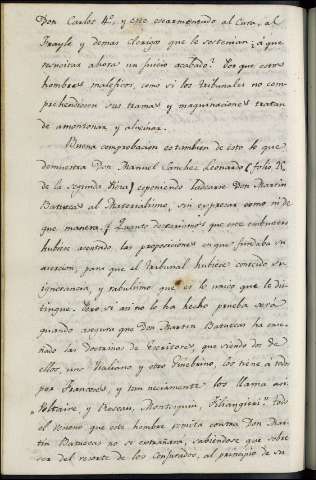 Don Carlos 4º, y esto escarmentando al Cura, al
Frayle y demas clerigos que le sostenian ¿á que
resucitar ahora un juicio acabado? Porque estos
hombres maleficos, como si los tribunales no com-
prehendiesen sus tramas y maquinaciones tratan
de amontonar y alucinar.
Buena comprobacion es tambien de esto lo que
demuestra Don Manuel Sanchez Leonardo (folio
de la segunda Pieza) exponiendo ladearse Don Martin
Batuecas al Materialismo, sin expresar como ni de
que manera. ¡Quanto desearíamos que este embustero
hubiese asentado las proposiciones en que fundaba su
asercion, para que el tribunal hubiese conocido su
ignorancia, y rabulismo que es lo unico que le dis-
tingue. Pero si asi no lo ha hecho prueba será
quando asegura que Don Martin Batuecas ha ense-
ñado las doctrinas de Escritores, que siendo dos de
ellos, uno Italiano y otro Ginebrino, los tiene á todos
por Franceses, y tan neciamente los llama asi
Voltaire, y Roseau, Montesquiu, Filangieri. Todo
el veneno que este hombre vomita contra Don Mar-
tin Batuecas no se extrañará, sabiendose que sobre
ser del resorte de los Conjurados, al principio de su